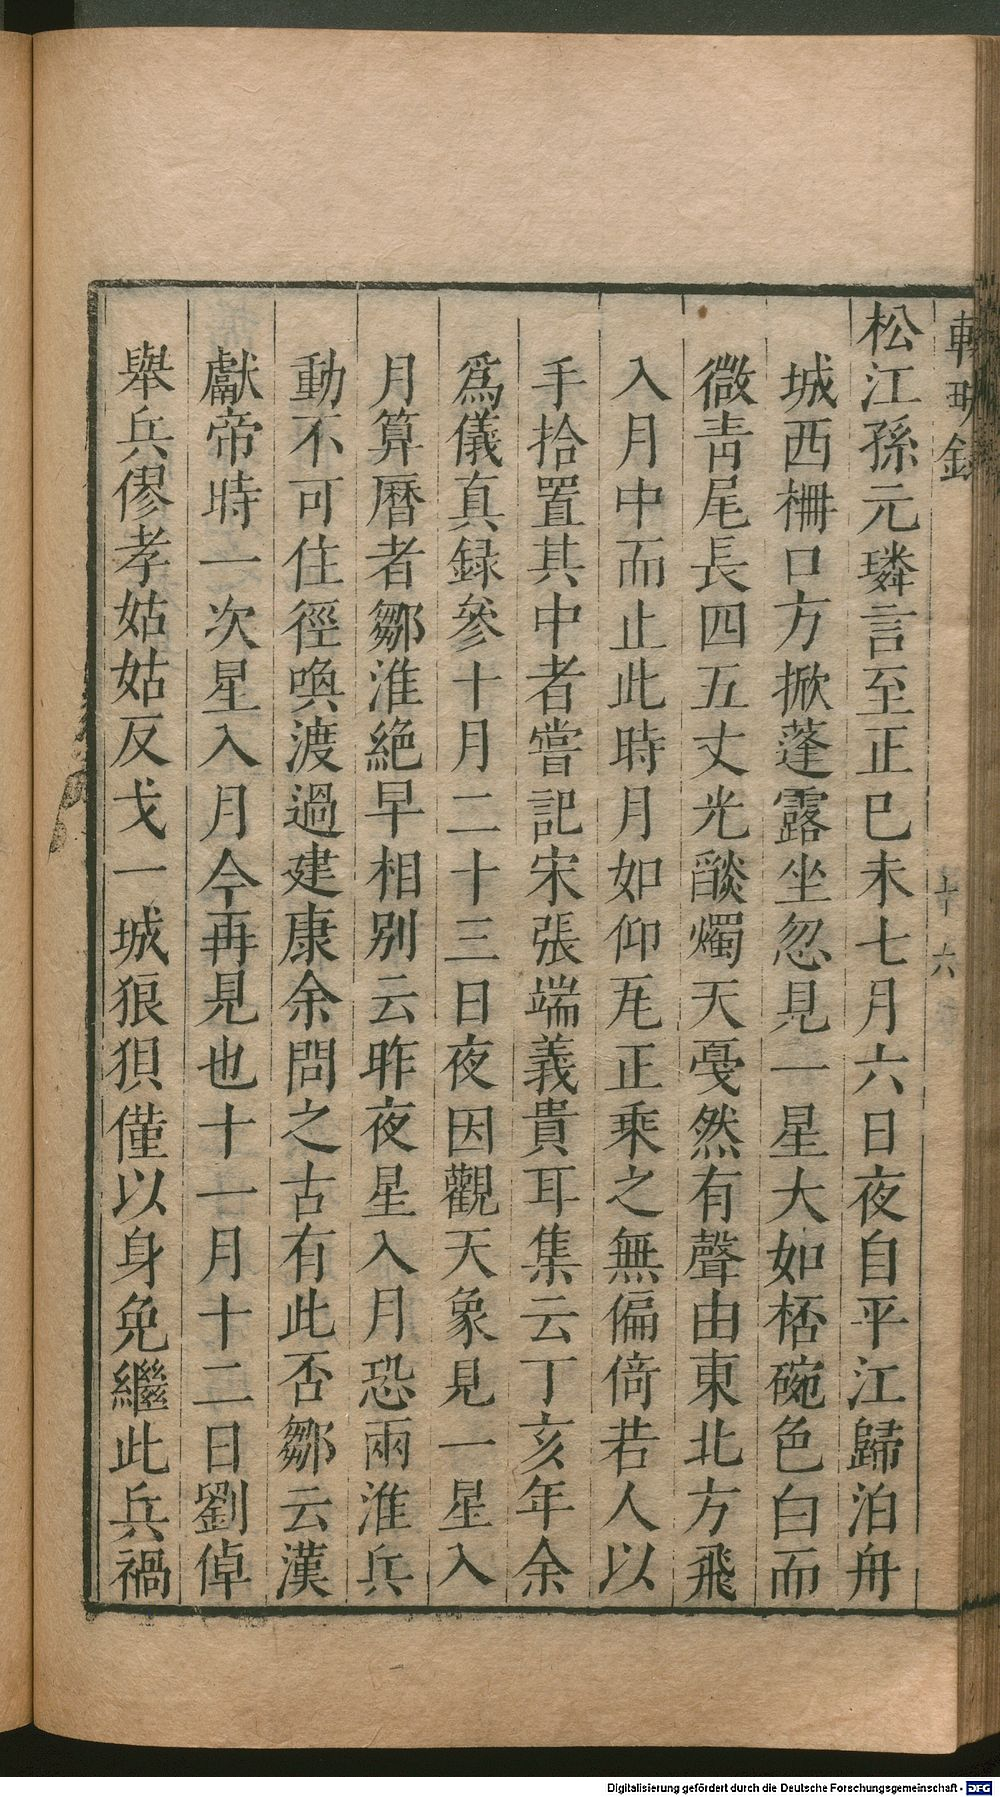 輟耕錄
十六
松江孫元璘言至正巳未七月六日夜自平江歸泊舟
城西柵口方掀蓬露坐忽見一星大如桮碗色白而
微青尾長四五丈光燄燭天戞然有聲由東北方飛
入月中而止此時月如仰瓦正乘之無偏倚若人以
手拾置其中者嘗記宋張端義貴耳集云丁亥年余
爲儀真録參十月二十三日夜因觀天象見一星入
月算曆者鄒淮絶早相别云昨夜星入月恐兩淮兵
動不可住徑喚渡過建康余問之古有此否鄒云漢
獻帝時一次星入月今再見也十一月十二日劉倬
舉兵僇孝姑姑反戈一城狼狽僅以身免繼此兵禍
Digitalisierung gefördert durch die Deutsche Forschungsgemeinschaft - DFG